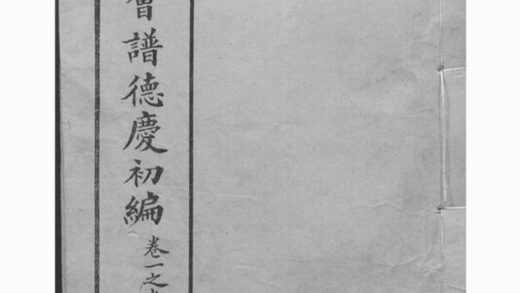 會譜德慶初編
卷一之